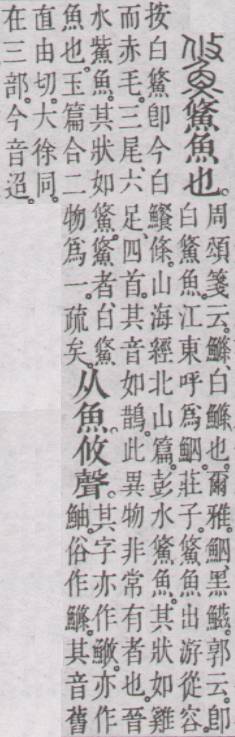 鯈魚也。
周頌箋云。鰷、白鰷也。爾雅。鮂、黑鰦。郭云。卽
白鯈魚。江東呼爲鮂。莊子。鯈魚出游從容。
按白鯈卽今白條。山海經北山篇。彭水鯈魚。其狀如雞
而赤毛。三尾、六足、四首。其音如鵲。此異物非常有者也。晉
水鮆魚。其狀如鯈。鯈者、白鯈
魚也。玉篇合二物爲一。疏矣。
从魚攸聲。
其字亦作。亦作
鮋。俗作鰷。其音舊
直由切。大徐同。
在三部。今音迢。